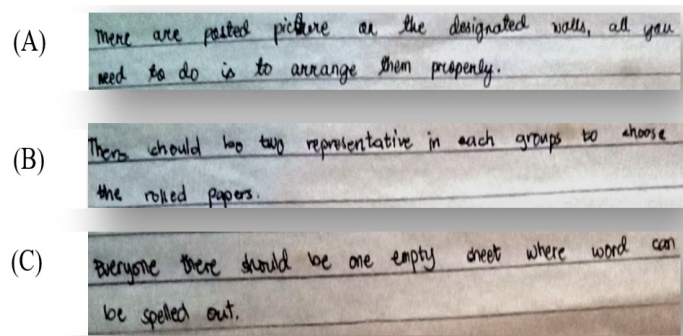 (A)
There are posted picture on the designated walls, all you
need to do is to arrange them properly.
(B)
There should be two representative in each groups to choose
the rolled papers.
(C)
Everyone there should be one empty sheet where word can
be spelled out.